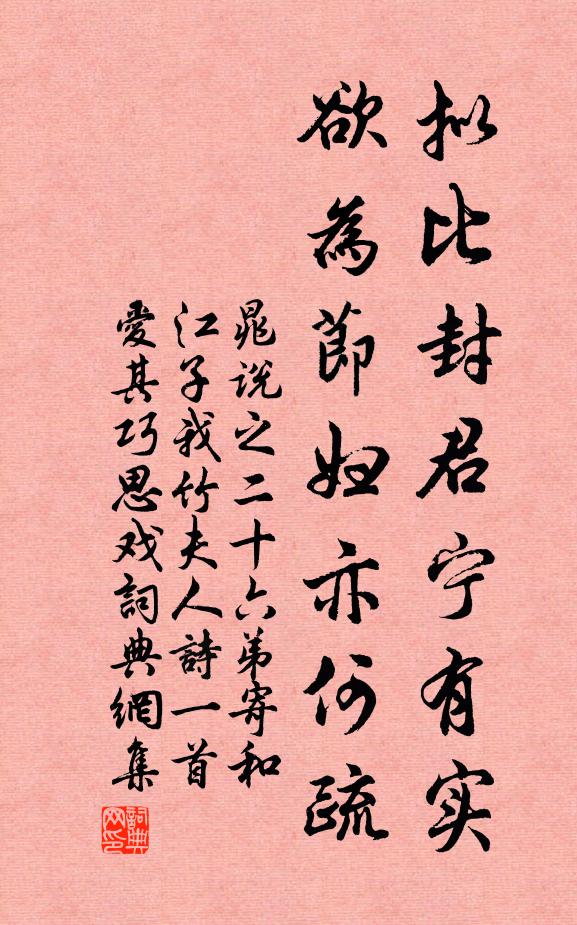 拟比封君宁有实
欲為節妇亦何疏
晁说之二十六弟寄和
江子我竹夫人詩一首
愛其巧思戏詞典網集
詞典
网印